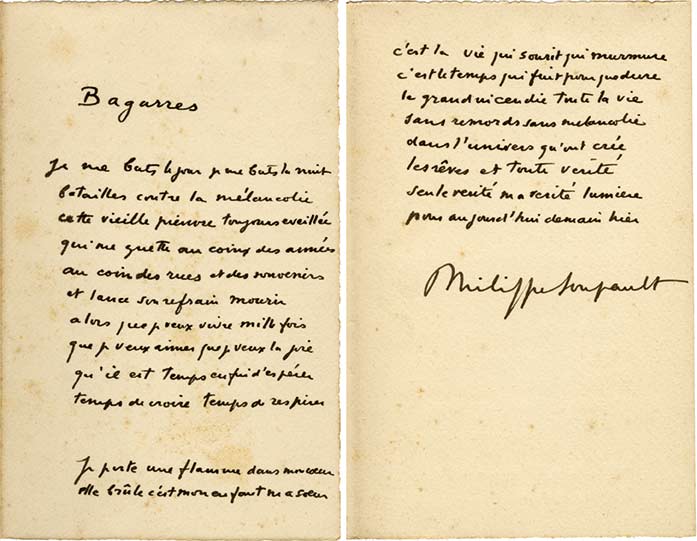 Bagarres
Je me bats le jour je me bats la nuit
batailles contre la mélancolie
cette vieille pieuvre toujours éveillée
qui me guette au coin des années
au coin des rues et des souvenirs
et lance son refrain mourir
alors que je veux vivre mille fois
que je veux aimer que je veux la joie
qu'il est temps enfin d'espérer
temps de croire temps de respirer
Je porte une flamme dans mon cœur
elle brûle c'est mon enfant ma sœur
c'est la vie qui sourit qui murmure
c'est le temps qui fuit pour que dure
le grand incendie toute la vie
sans remords sans mélancolie
dans l'univers qu'ont créé
les rêves et toute vérité
seule vérité ma vérité lumière
pour aujourd'hui demain hier
Philippe Soupault